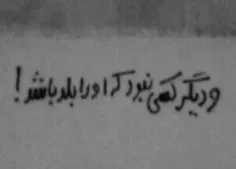 و دیگر کسی نبود که او را بلد باشد!